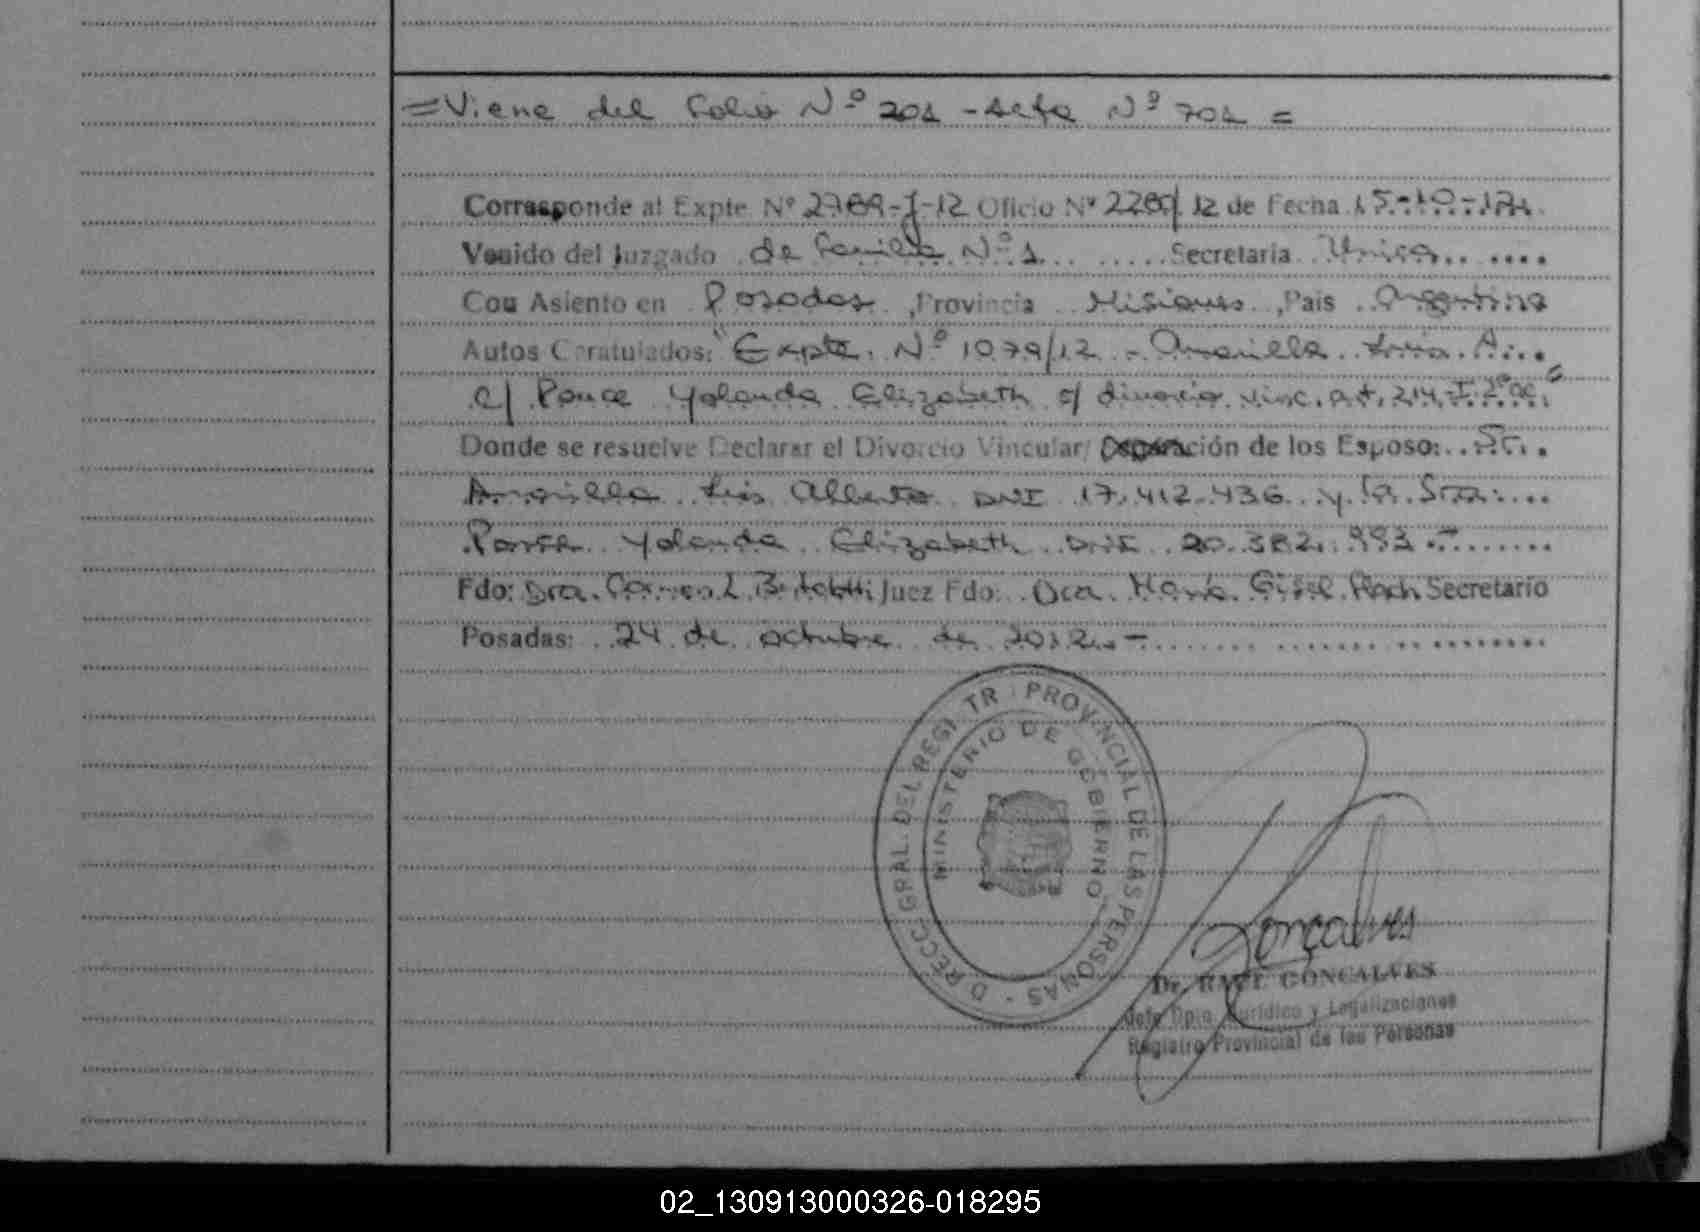 =Viene del Folio Nº 201 - Acta Nº 701 =
Corresponde al Expte Nº 2789-J-12 Oficio Nº 2280/12 de Fecha 15-10-12
Venido del Juzgado de Familia Nº 1 Secretaria Unica
Con Asiento en Posadas, Provincia Misiones, Pais Argentina
Autos Caratulados: "Expte. Nº 1079/12 - Amarilla Luis A.
c/ Ponce Yolanda Elizabeth s/ divorcio vinc. art. 214 I 2º CC"
Donde se resuelve Declarar el Divorcio Vincular/ ción de los Esposo: Sr.
Amarilla Luis Alberto DNI 17.412.436 y la Sra.
Ponce Yolanda Elizabeth DNI 20.382.993.-
Fdo: Dra. Carmen L. Juez Fdo: Dra. María Gisel Secretario
Posadas: 24 de octubre de 2012.-
DIRECC. GRAL. DEL REGISTR PROVINCIAL DE LAS PERSONAS -
MINISTERIO DE GOBIERNO
Gonçalves
Dr. RAUL GONCALVES
Jefe Dpto. Jurídico y Legalizaciones
Registro Provincial de las Personas
02_130913000326-018295